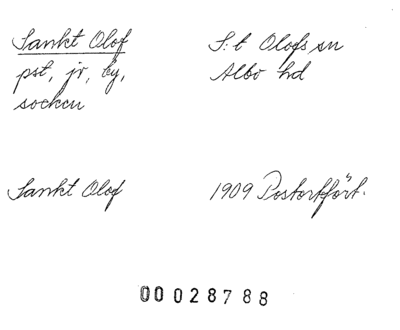 Sankt Olof
pst, jr, by,
socken
S:t Olofs sn
Albo hd
Sankt Olof
1909 Postortfört.
00028788